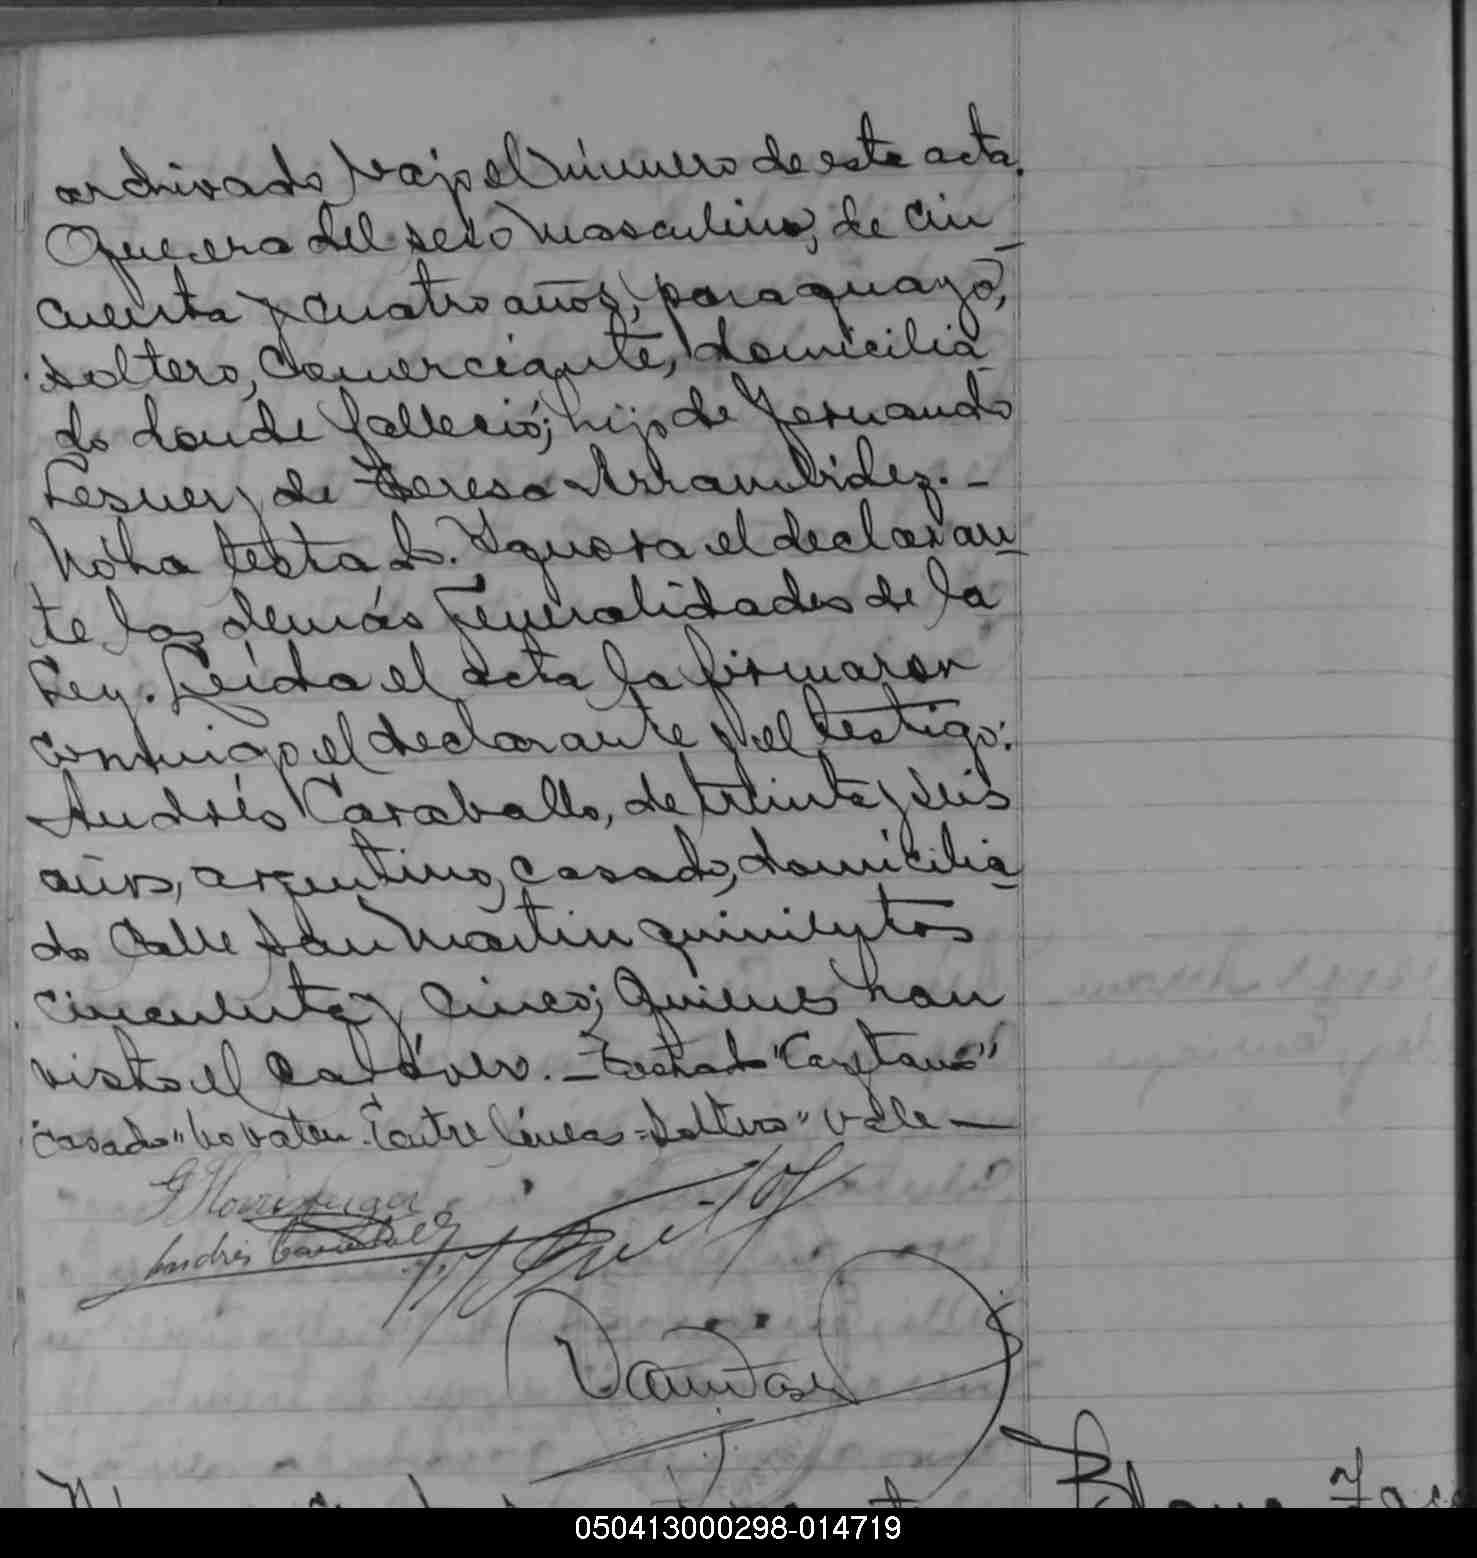 archivado bajo el número de este acta.
Que era del sexo masculino, de cin-
cuenta y cuatro años, paraguayo,
soltero, comerciante, domicilia-
do donde falleció; hijo de Fernando
y de Teresa Arrambidez.-
No ha testado. Ignora el declaran-
te las demás generalidades de la
Ley. Leída el acta la firmaron
conmigo el declarante y el testigo:
Andrés Caraballo, de treinta y seis
años, argentino, casado, domicilia-
do Calle San Martin quinientos
cincuenta y cinco; quienes han
visto el cadáver. - Testado "Cayetano"
"casado" no valen. Entre líneas = soltero " vale —
Andrés Caraballo
050413000298-014719